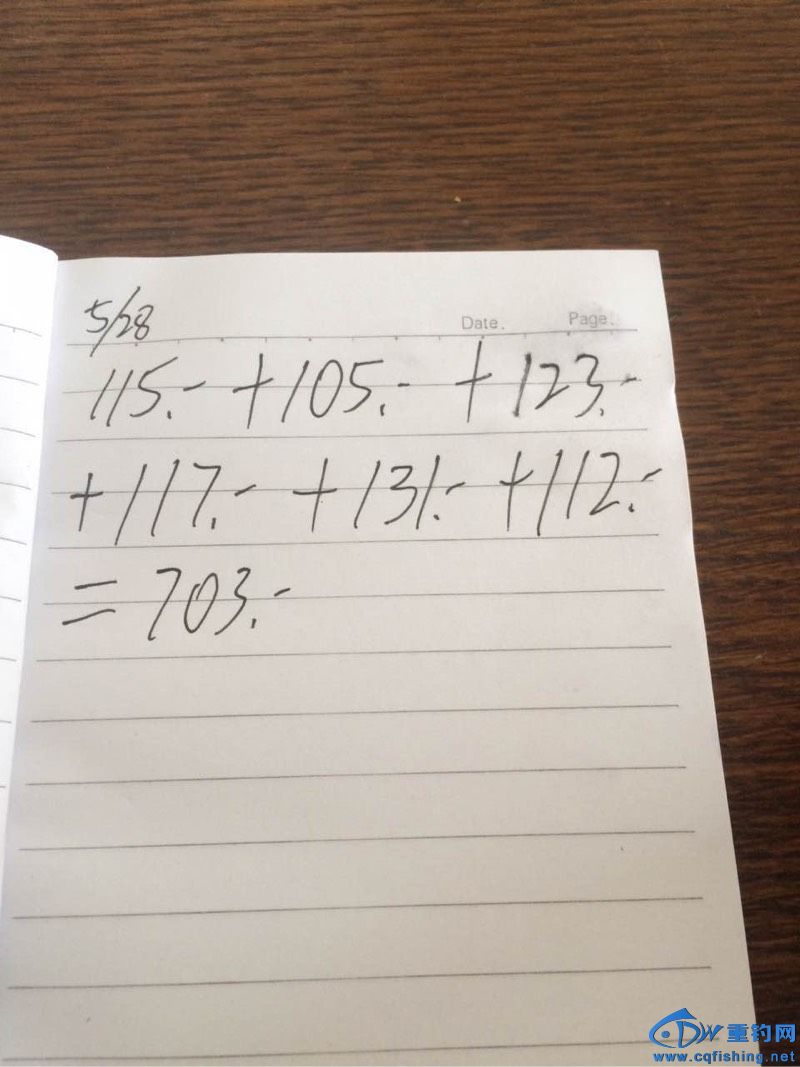 5/28
Date. Page.
115.- +105.- +123.-
+117.- +131.- +112.-
=703.-
重钓网
www.cqfishing.net